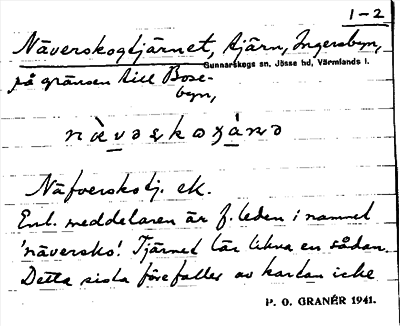 1-2
Näverskogtjärnet, tjärn, Ingersbyn,
Gunnarskogs sn, Jösse hd, Värmlands l.
på gränsen till Bose-
byn,
Näfverskotj. ek.
Enl. meddelaren är f. leden i namnet
'näversko'. Tjärnet lär likna en sådan.
Detta sista förefaller av kartan icke
P. O. GRANÉR 1941.